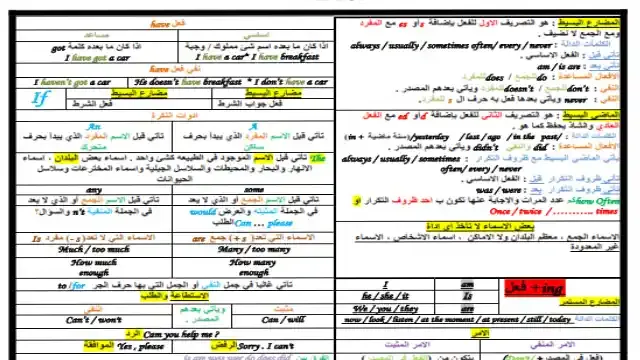 المضارع البسيط : هو التصريف الاول للفعل بإضافة s او es مع المفرد
ومع الجمع لا نضيف .
الكلمات الدالة : always / usually / sometimes often/ every / never
تأتي قبل : الفعل الاساسي .
تأتي بعد : am / is are
الأفعال المساعدة : do للجمع / does للمفرد
النفي : don't للجمع / doesn't للمفرد ويأتي بعدهم المصدر .
النفي : never ويأتي بعدها فعل به حرف ال s للمفرد.
الماضي البسيط : هو التصريف الثاني للفعل بإضافة d او ed مع الفعل
العادي والشاذ يحفظ كما هو .
الكلمات الدالة : yesterday / last / ago / in the past/ (سنة ماضية + in)
الأفعال المساعدة : did والنفي didn't ويأتي بعدهم المصدر .
يأتي الماضي البسيط مع ظروف التكرار : always / usually / sometimes
often/ every / never
تأتي ظروف التكرار قبل : الفعل الاساسي .
تأتي ظروف التكرار بعد : was / were
how Often كم عدد المرات والاجابة عنها تكون ب احد ظروف التكرار او
Once / twice / ........... times
بعض الاسماء لا تأخذ اى اداة
الاسماء الجمع ، معظم البلدان ولا الاماكن ، اسماء الاشخاص ، الاسماء
غير المعدودة
I am
he / she / it Is
We / you / they are
فعل +ing
المضارع المستمر
الكلمات الدالة now / look / listen / at the moment / at present / still / today
الامر
الامر المنفي
الامر المثبت
فعل have
اساسي
مساعد
اذا كان ما بعده اسم شئ مملوك / وجبة
اذا كان ما بعده كلمة got
I have a car* I have breakfast
I have got a car
نفي فعل have
I haven't got a car
He doesn't have breakfast * I don't have a car
If
مضارع البسيط
مضارع البسيط
فعل جواب الشرط
فعل الشرط
ادوات النكرة
A
An
تأتي قبل الاسم المفرد الذي يبدأ بحرف
ساكن
تأتي قبل الاسم المفرد الذي يبدأ بحرف
متحرك
The تأتي قبل الاسم الموجود في الطبيعه كشئ واحد ، اسماء بعض البلدان ، اسماء
الانهار والبحار والمحيطات والسلاسل الجبلية واسماء المخترعات وسلاسل
الحيوانات
some
any
تأتي قبل الاسم الجمع أو الذي لا يعد
في الجملة المثبته والعرض would
Can ... please الطلب
تأتي قبل الاسم الجمع أو الذي لا يعد
في الجملة المنفية n's والسؤال؟
الاسماء التي تعد (+ s) جمع are
الاسماء التي لا تعد (- s) مفرد Is
Many / too many
Much / too much
How many
How much
enough
enough
تأتي غالبا في جمل النفي أو الجمل التي بها حرف الجر to / for
الاستطاعة والطلب
مثبت
ويأتي بعدهم
المصدر .
النفي
Can / will
Can't / won't
Can you help me ? الرد
الرفض Sorry . I can't
الموافقة Yes , please